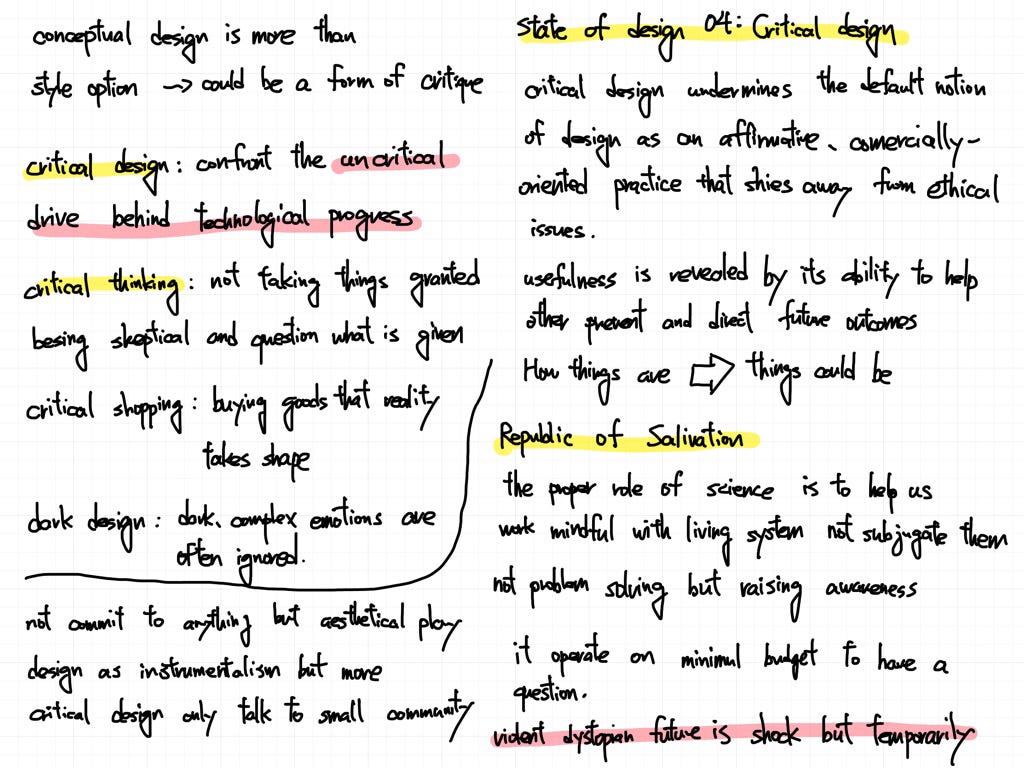 conceptual design is more than
style option → could be a form of critique
critical design : confront the uncritical
drive behind technological progress
critical thinking : not taking things granted
besing skeptical and question what is given
critical shopping : buying goods that reality
takes shape
dark design : dark, complex emotions are
often ignored.
not commit to anything but aesthetical play
design as instrumentalism but more
critical design only talk to small community
State of design 04: Critical design
critical design undermines the default notion
of design as an affirmative, comercially-
oriented practice that shies away from ethical
issues.
usefulness is revealed by its ability to help
other prevent and direct future outcomes
How things are ⇨ things could be
Republic of Salivation
the proper role of science is to help us
work mindful with living system not subjugate them
not problem solving but raising awareness
it operate on minimul budget to have a
question.
violent dystopian future is shock but temporarily